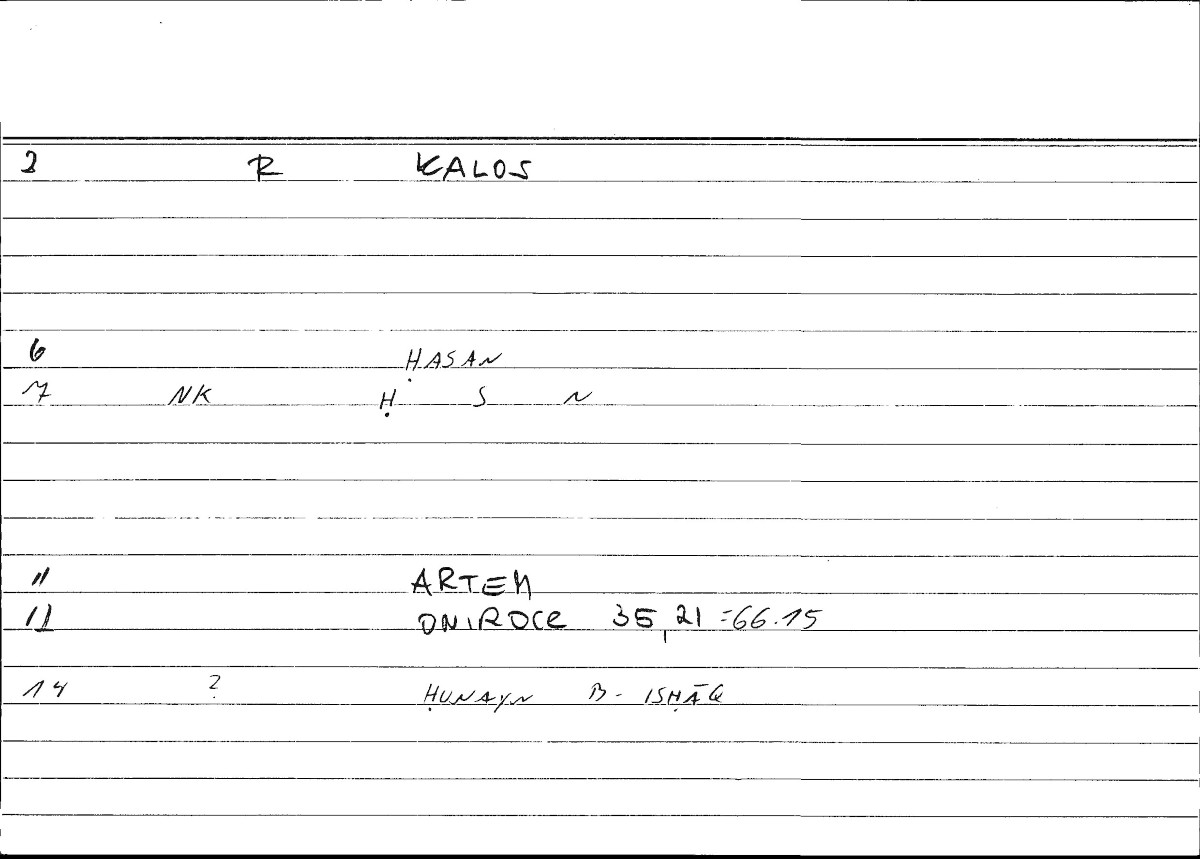 2 R KALOS
6 ḤASAN
7 NK Ḥ S N
11 ARTEM
12 ONIROCR 35,21 = 66.15
14 ? ḤUNAYN B- ISḤĀQ